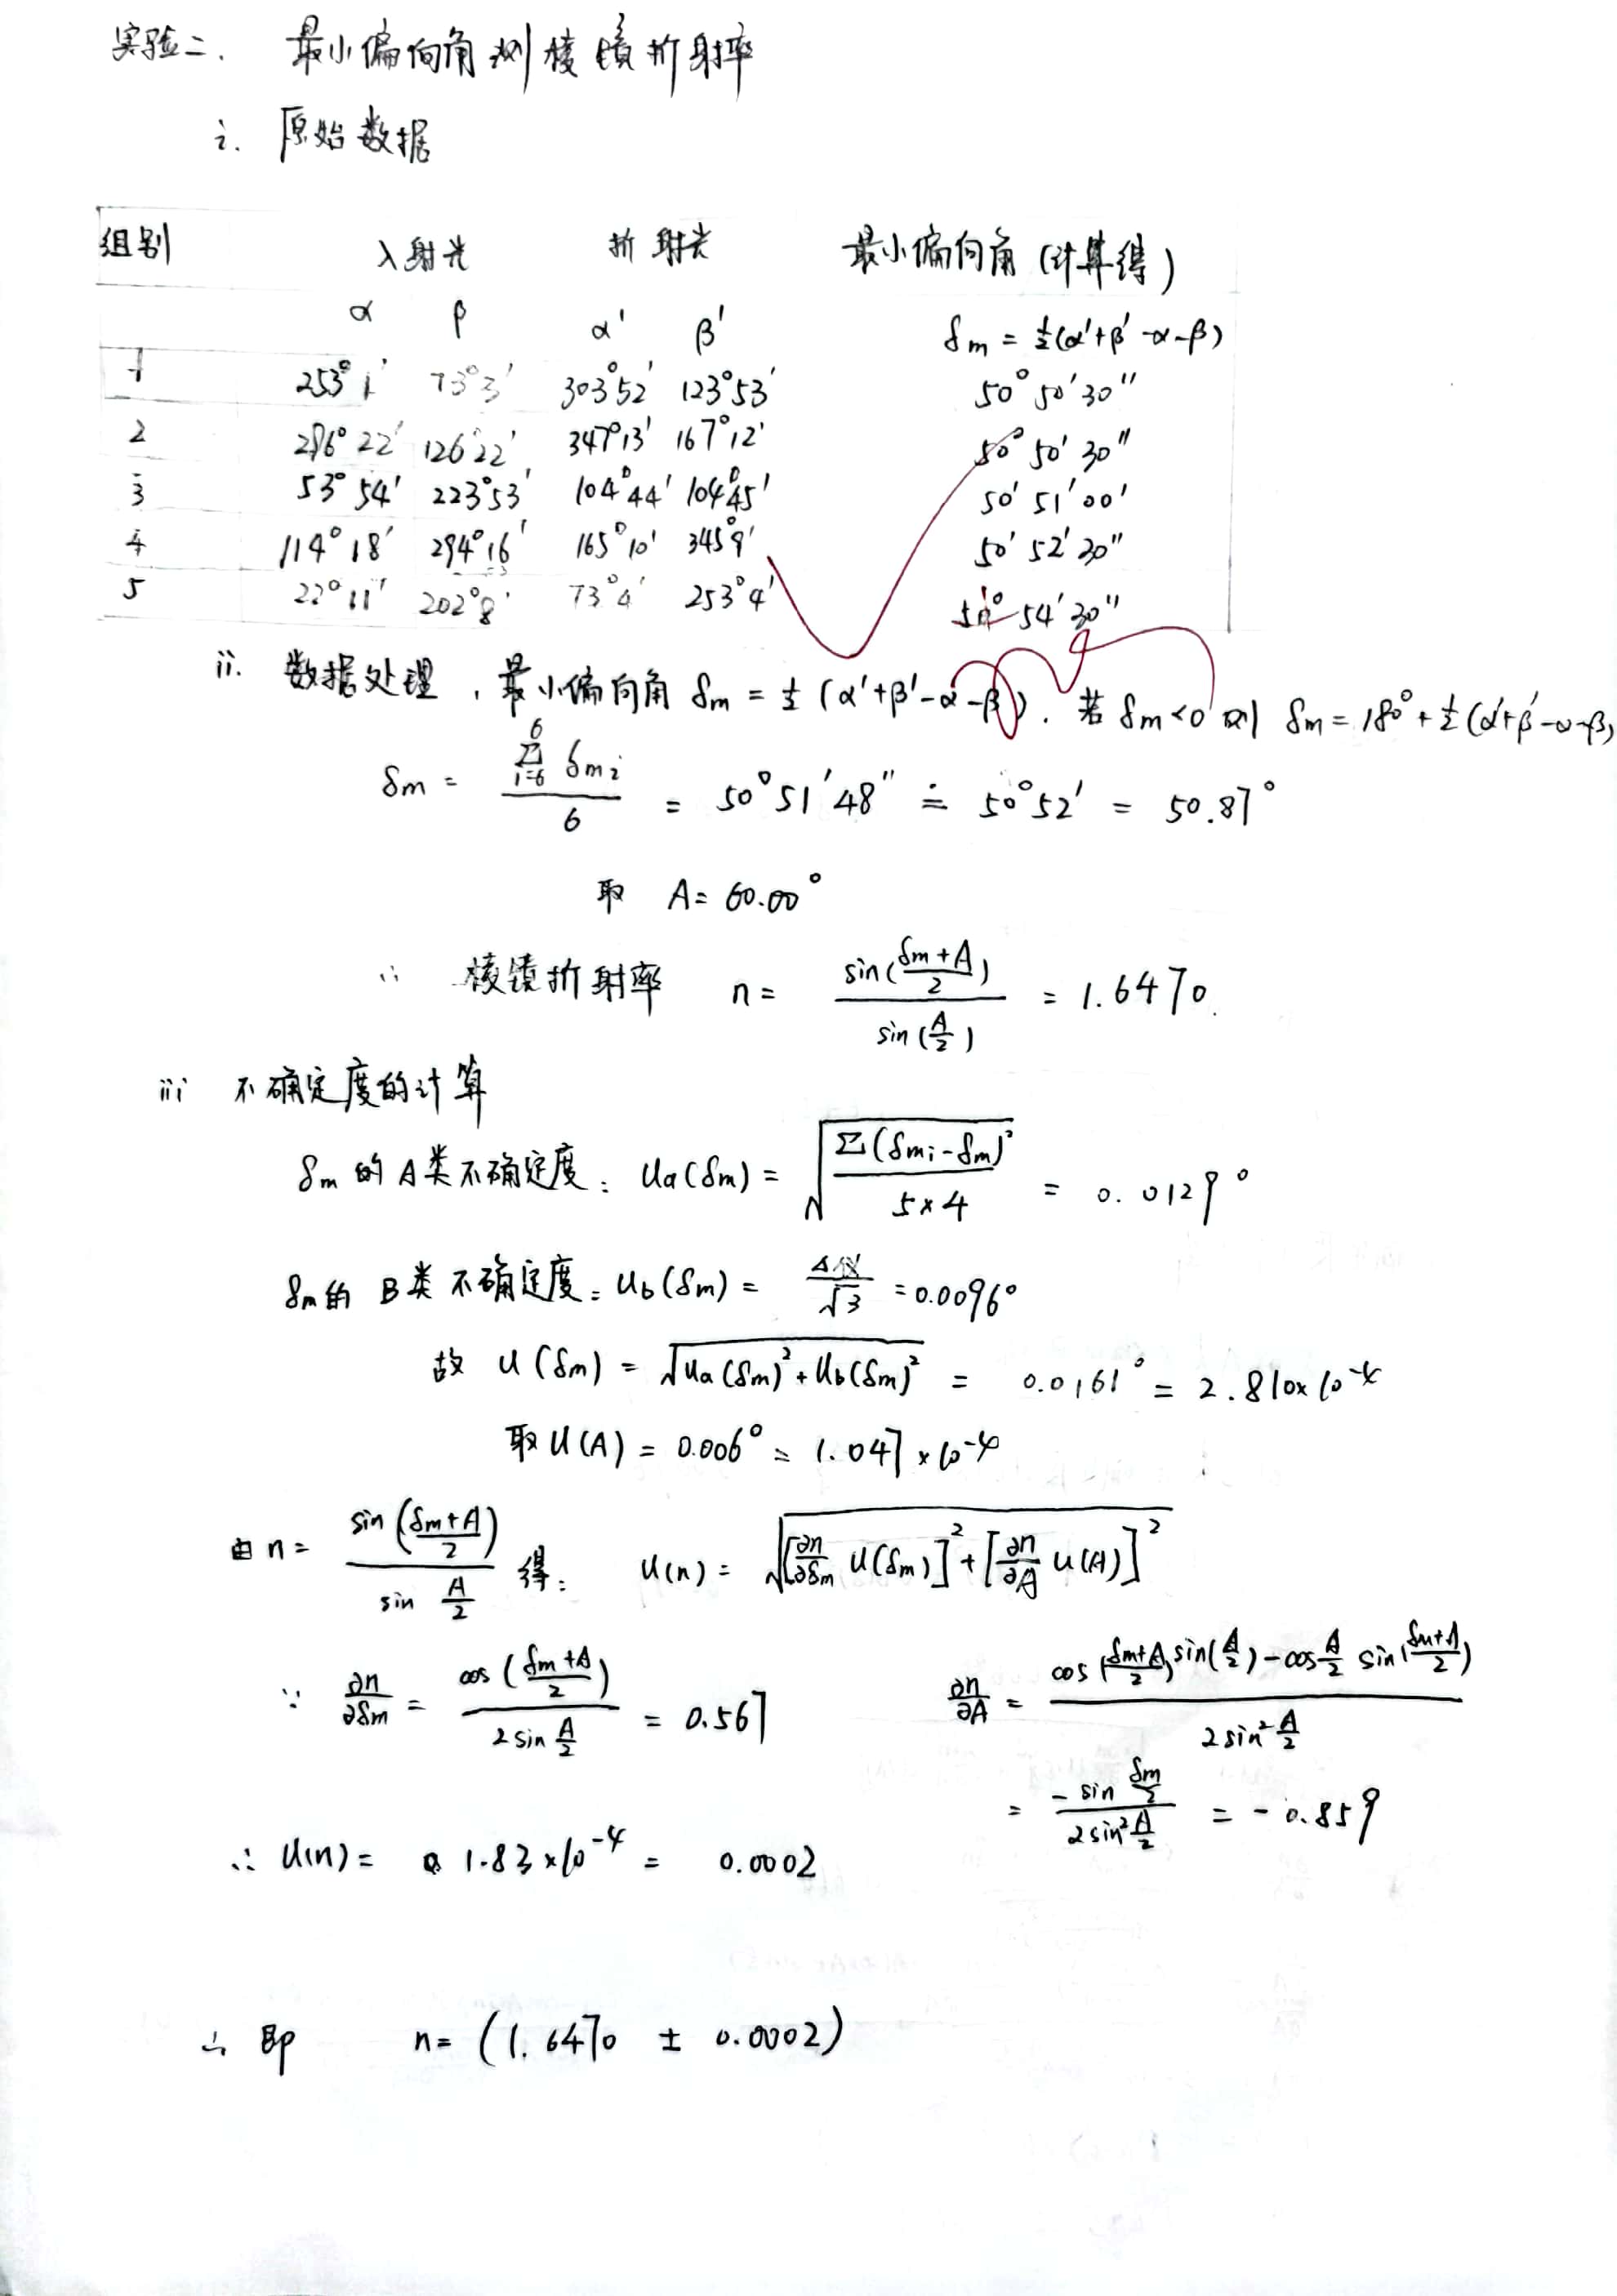 实验二. 最小偏向角测棱镜折射率
i. 原始数据
组别 入射光 折射光 最小偏向角(计算得)
α β α' β' δm = ½(α'+β'-α-β)
1 253°1' 73°3' 303°52' 123°53' 50°50'30"
2 296°22' 126°22' 347°13' 167°12' 50°50'30"
3 53°54' 223°53' 104°44' 104°45' 50'51'00'
4 114°18' 294°16' 165°10' 345°9' 50'52'30"
5 22°11' 202°8' 73°4' 253°4' 50°54'30"
ii. 数据处理, 最小偏向角 δm = ½(α'+β'-α-β). 若 δm<0 则 δm = 180°+½(α'+β'-α-β)
δm = \frac{\sum_{i=6}^{6} δmi}{6} = 50°51'48" ≐ 50°52' = 50.87°
取 A = 60.00°
∴ 棱镜折射率 n = \frac{sin(\frac{δm+A}{2})}{sin(\frac{A}{2})} = 1.6470.
iii 不确定度的计算
δm 的 A类不确定度: Ua(δm) = \sqrt{\frac{Σ(δmi-δm)²}{5×4}} = 0.0129°
δm的 B类不确定度: Ub(δm) = \frac{Δ仪}{\sqrt{3}} = 0.0096°
故 U(δm) = \sqrt{Ua(δm)²+Ub(δm)²} = 0.0161° = 2.810×10⁻⁴
取 U(A) = 0.006° = 1.047×10⁻⁴
由 n = \frac{sin(\frac{δm+A}{2})}{sin\frac{A}{2}} 得: U(n) = \sqrt{[\frac{∂n}{∂δm}U(δm)]²+[\frac{∂n}{∂A}U(A)]²}
∵ \frac{∂n}{∂δm} = \frac{cos(\frac{δm+A}{2})}{2sin\frac{A}{2}} = 0.567 \frac{∂n}{∂A} = \frac{cos(\frac{δm+A}{2})sin(\frac{A}{2})-cos\frac{A}{2}sin(\frac{δm+A}{2})}{2sin²\frac{A}{2}}
= \frac{-sin\frac{δm}{2}}{2sin²\frac{A}{2}} = -0.859
∴ U(n) = 1.83×10⁻⁴ = 0.0002
∴ 即 n = (1.6470 ± 0.0002)